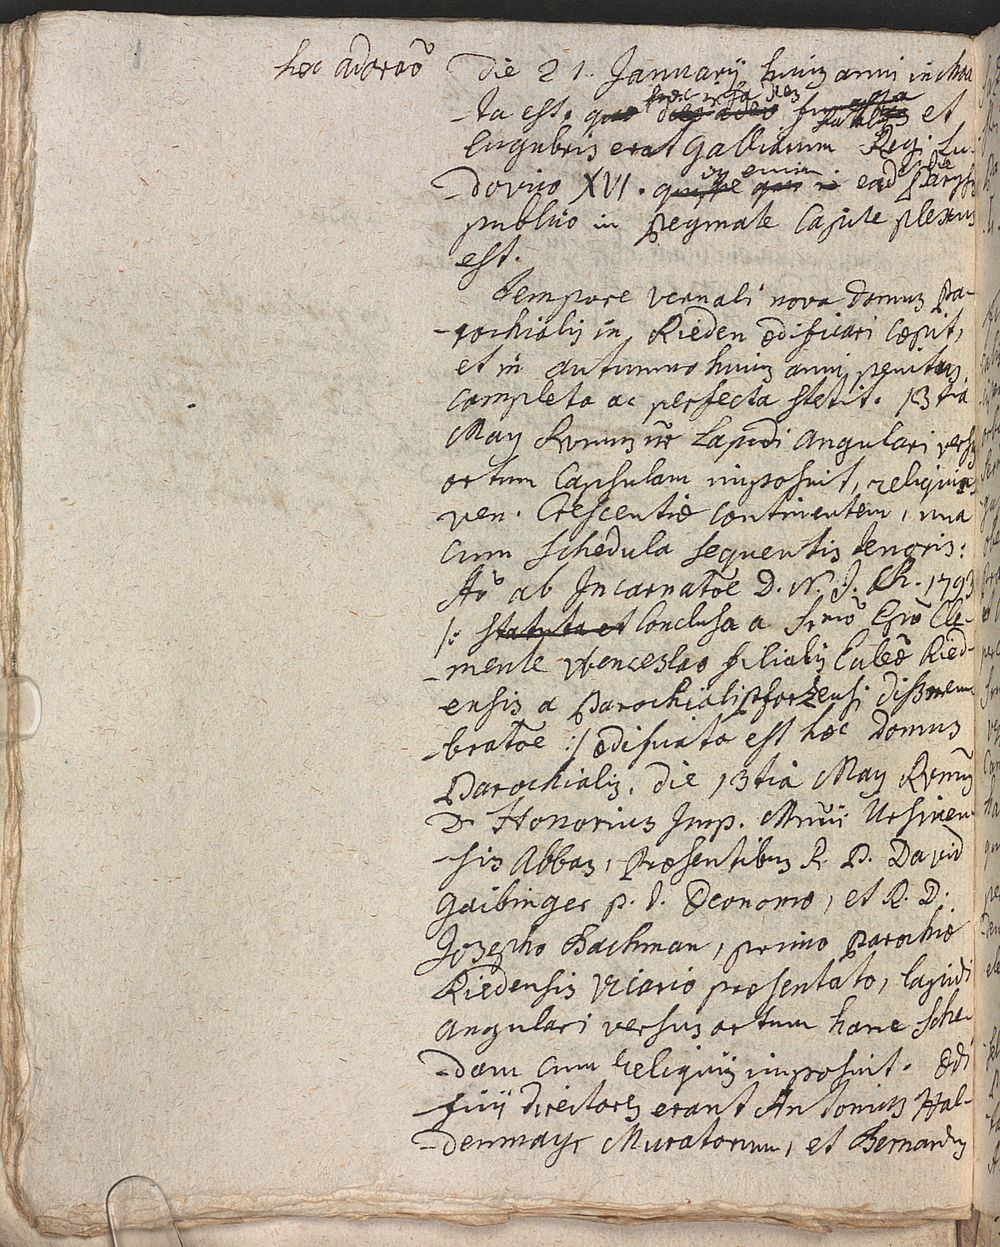 hæc adoraõ Die 21. Januarij huius anni inchoa
ta est. quo hæc ipsa dies dies adeo funesta fatalis et
lugubris erat Galliarum Regi Lu-
-dovico XVI. quippe quo is enim eadē die Parysijs
publico in pegmate capite plexus
est.
Tempore vernali nova domus Pa-
-rochialis in Rieden ædificari cœpit,
et in autumno huius anni penitus
completa ac perfecta stetit. 13tiâ
May Rvmus nr̄ Lapidi angulari versus
ortum Capsulam imposuit, reliquias
ven. Crescentiæ continentem, una
cum schedula sequentis tenoris:
Aō ab Incarnatōe D. N. J. Ch. 1793
/: statuta et conclusa a Srmō Epō Cle-
-mente Wenceslao filialis Eccleæ Ried-
-ensis a Parochiali Pforzensi dismem-
-bratōe :/ ædificata est hæc Domus
Parochialis. die 13tiâ May Rvmus
D. Honorius Imp. Mrii Ursinen-
-sis Abbas, Præsentibus R. P. David
Gaibinger p. t. Œconomo, et R. D.
Josepho Bachman, primo Parochiæ
Riedensis Vicario præsentato, lapidi
angulari versus ortum hanc Sche-
-dam cum reliquijs imposuit. Ædi
ficij directores erant Antonius Hal-
-denmayr Muratorum, et Bernardus